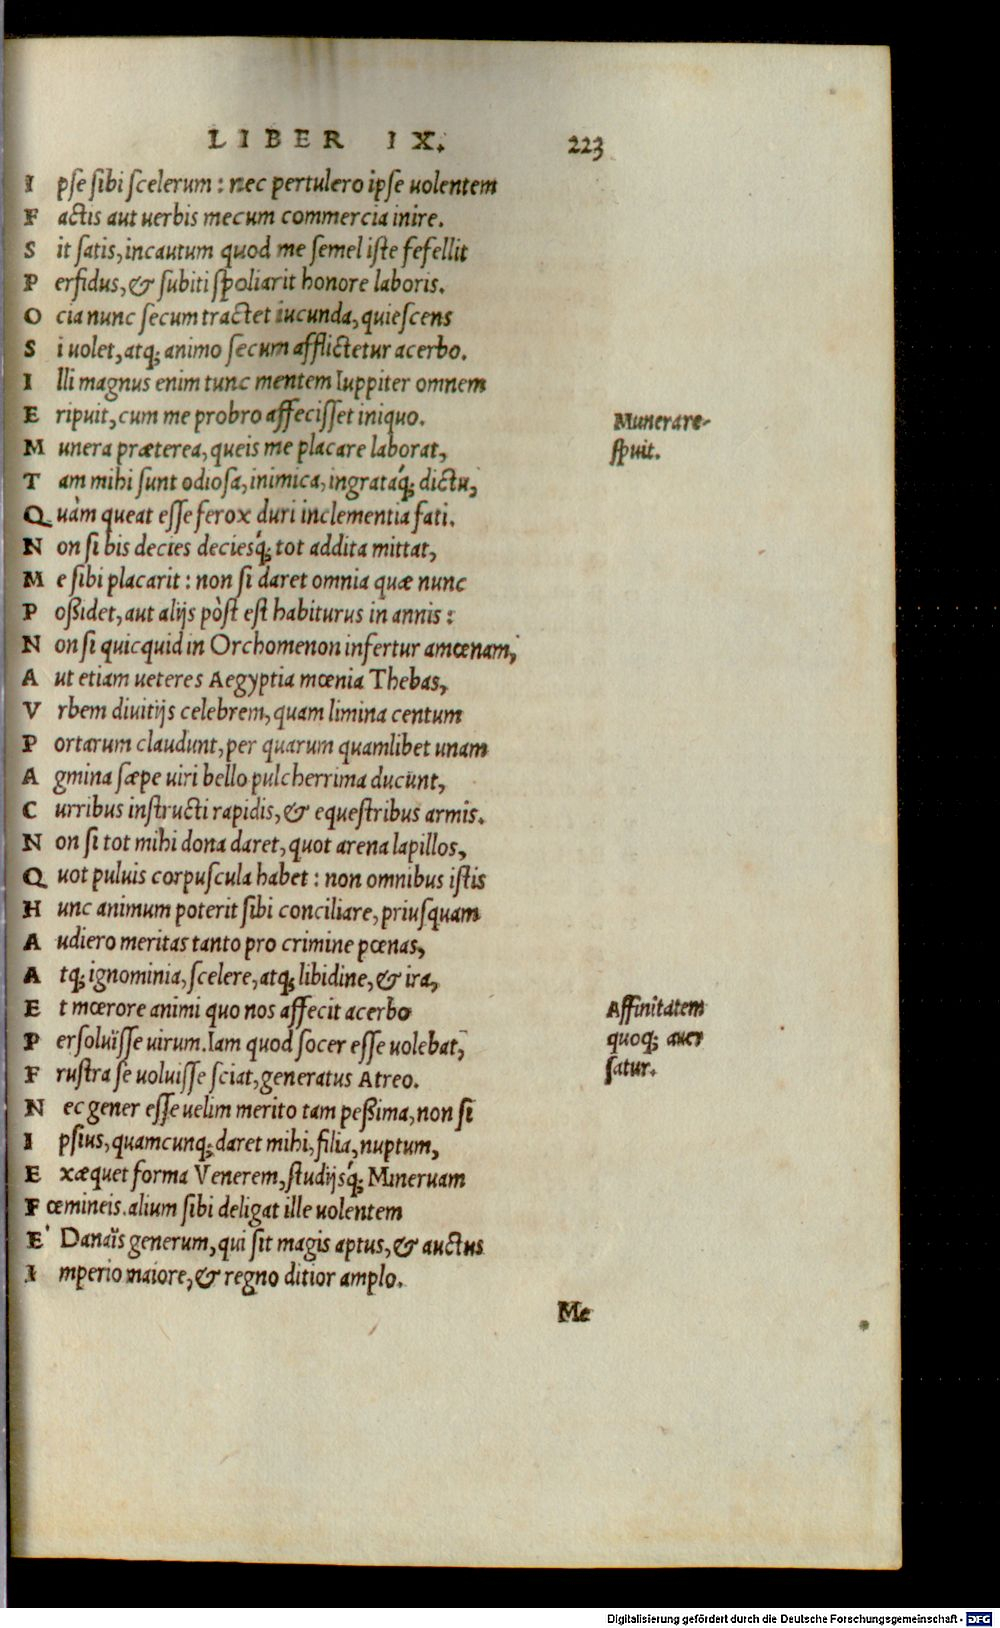 LIBER IX. 223
Ipse sibi scelerum: nec pertulero ipse uolentem
Factis aut uerbis mecum commercia inire.
Sit satis, incautum quod me semel iste fefellit
Perfidus, & subiti spoliarit honore laboris.
Ocia nunc secum tractet iucunda, quiescens
Si uolet, atq; animo secum afflictetur acerbo.
Illi magnus enim tunc mentem Iuppiter omnem
Eripuit, cum me probro affecisset iniquo.
Munera præterea, queis me placare laborat,
Munera re-
spuit.
Tam mihi sunt odiosa, inimica, ingratáq; dictu,
Quàm queat esse ferox duri inclementia fati.
Non si bis decies deciesq́; tot addita mittat,
Me sibi placarit: non si daret omnia quæ nunc
Poßidet, aut alijs pòst est habiturus in annis:
Non si quicquid in Orchomenon infertur amœnam,
Aut etiam ueteres Aegyptia mœnia Thebas,
Vrbem diuitijs celebrem, quam limina centum
Portarum claudunt, per quarum quamlibet unam
Agmina sæpe uiri bello pulcherrima ducunt,
Curribus instructi rapidis, & equestribus armis.
Non si tot mihi dona daret, quot arena lapillos,
Quot puluis corpuscula habet: non omnibus istis
Hunc animum poterit sibi conciliare, priusquam
Audiero meritas tanto pro crimine pœnas,
Atq; ignominia, scelere, atq; libidine, & ira,
Et mœrore animi quo nos affecit acerbo
Affinitatem
quoq; auer
satur.
Persoluïsse uirum. Iam quod socer esse uolebat,
Frustra se uoluisse sciat, generatus Atreo.
Nec gener esse uelim merito tam peßima, non si
Ipsius, quamcunq; daret mihi, filia, nuptum,
Exæquet forma Venerem, studijsq́; Mineruam
Fœmineis. alium sibi deligat ille uolentem
E' Danaïs generum, qui sit magis aptus, & auctus
Imperio maiore, & regno ditior amplo.
Me
Digitalisierung gefördert durch die Deutsche Forschungsgemeinschaft - DFG